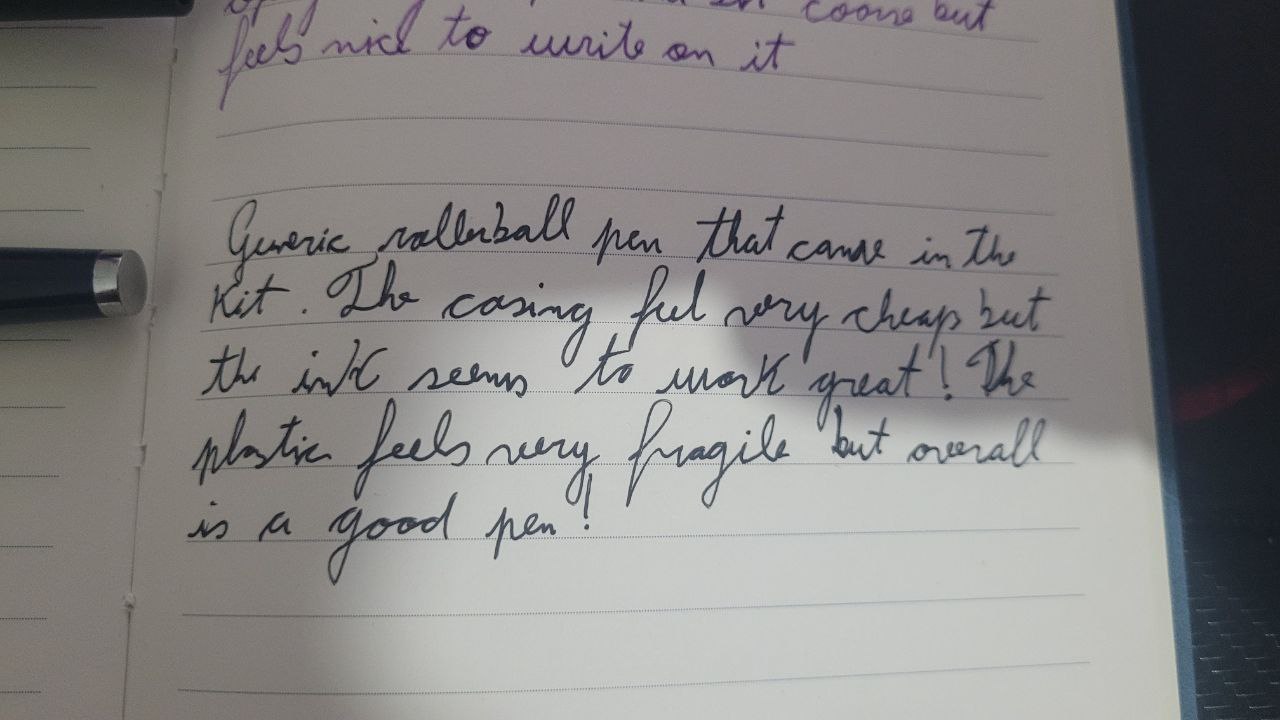 but
feels nice to write on it
Generic rollerball pen that came in the
Kit. The casing feel very cheap but
the ink seems to work great! The
plastic feels very fragile but overall
is a good pen!